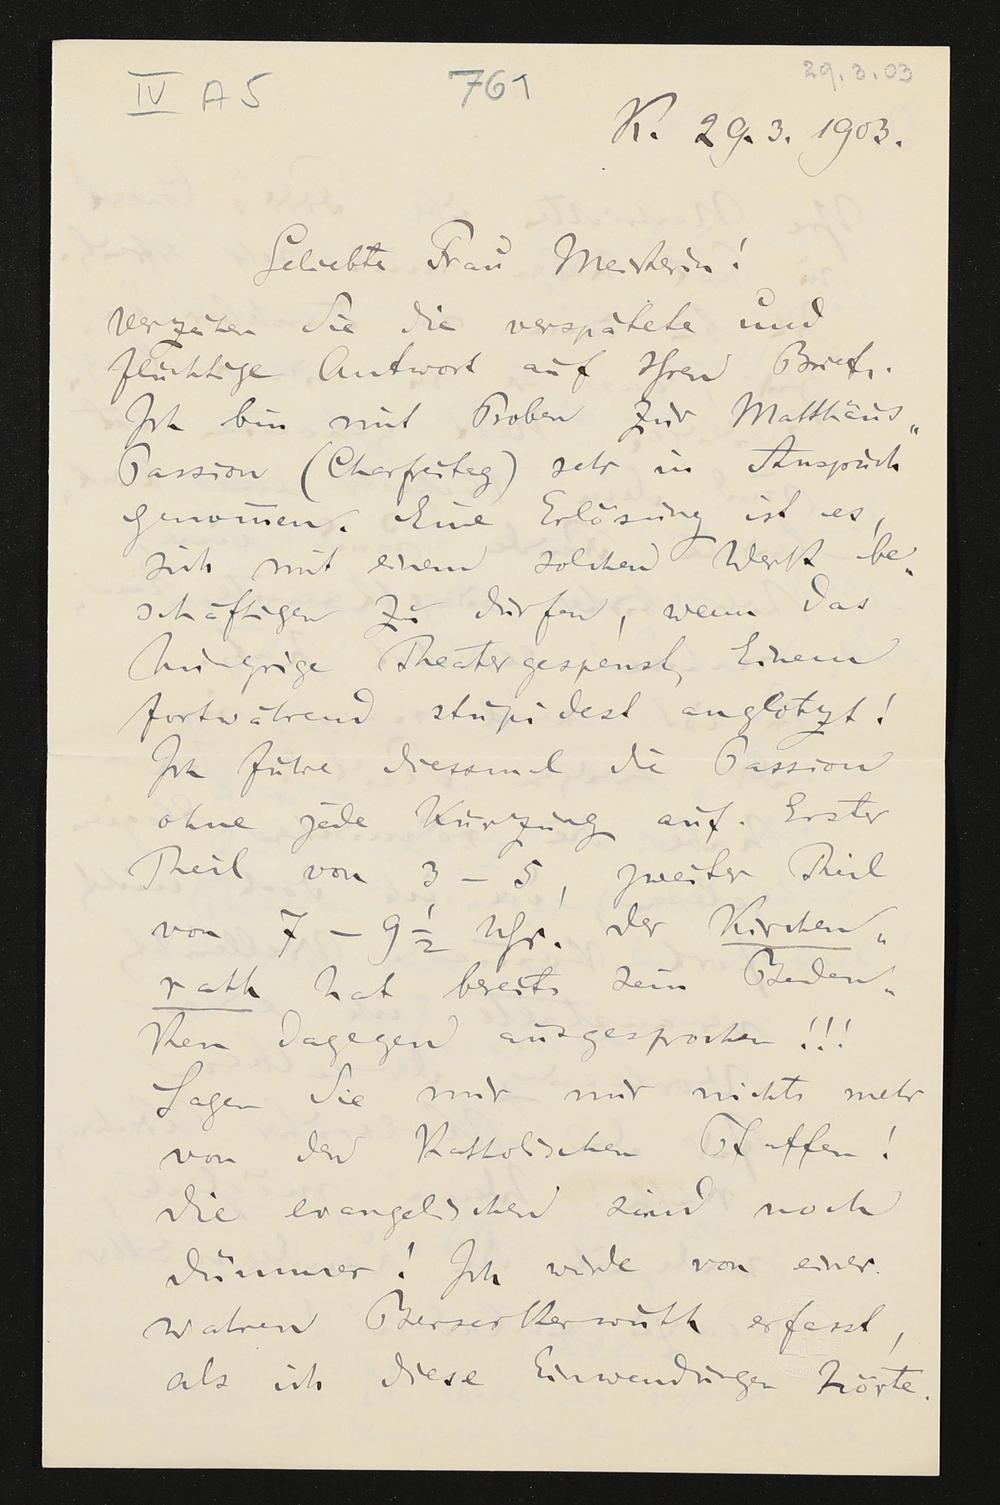 IV A 5
761
29.3.03
K. 29.3.1903.
Geliebte Frau Meisterin!
Verzeihen Sie die verspätete und
flüchtige Antwort auf Ihren Brief.
Ich bin mit Proben zur Matthäus„
Passion (Charfreitag) sehr in Anspruch
genom̄en. Eine Erlösung ist es,
sich mit einem solchen Werk be„
schäftigen zu dürfen, wenn das
hungrige Theatergespenst Einem
fortwährend stupidest anglotzt!
Ich führe diessmal die Passion
ohne jede Kürzung auf. Erster
Theil von 3 – 5, zweiter Theil
von 7 – 9½ Uhr. Der Kirchen„
rath hat bereits sein Beden„
ken dagegen ausgesprochen!!!
Sagen Sie mir nur nichts mehr
von den Katholischen Pfaffen!
Die evangelischen sind noch
dümmer! Ich wurde von einer
wahren Berserkerwuth erfasst,
als ich diese Einwendungen hörte.